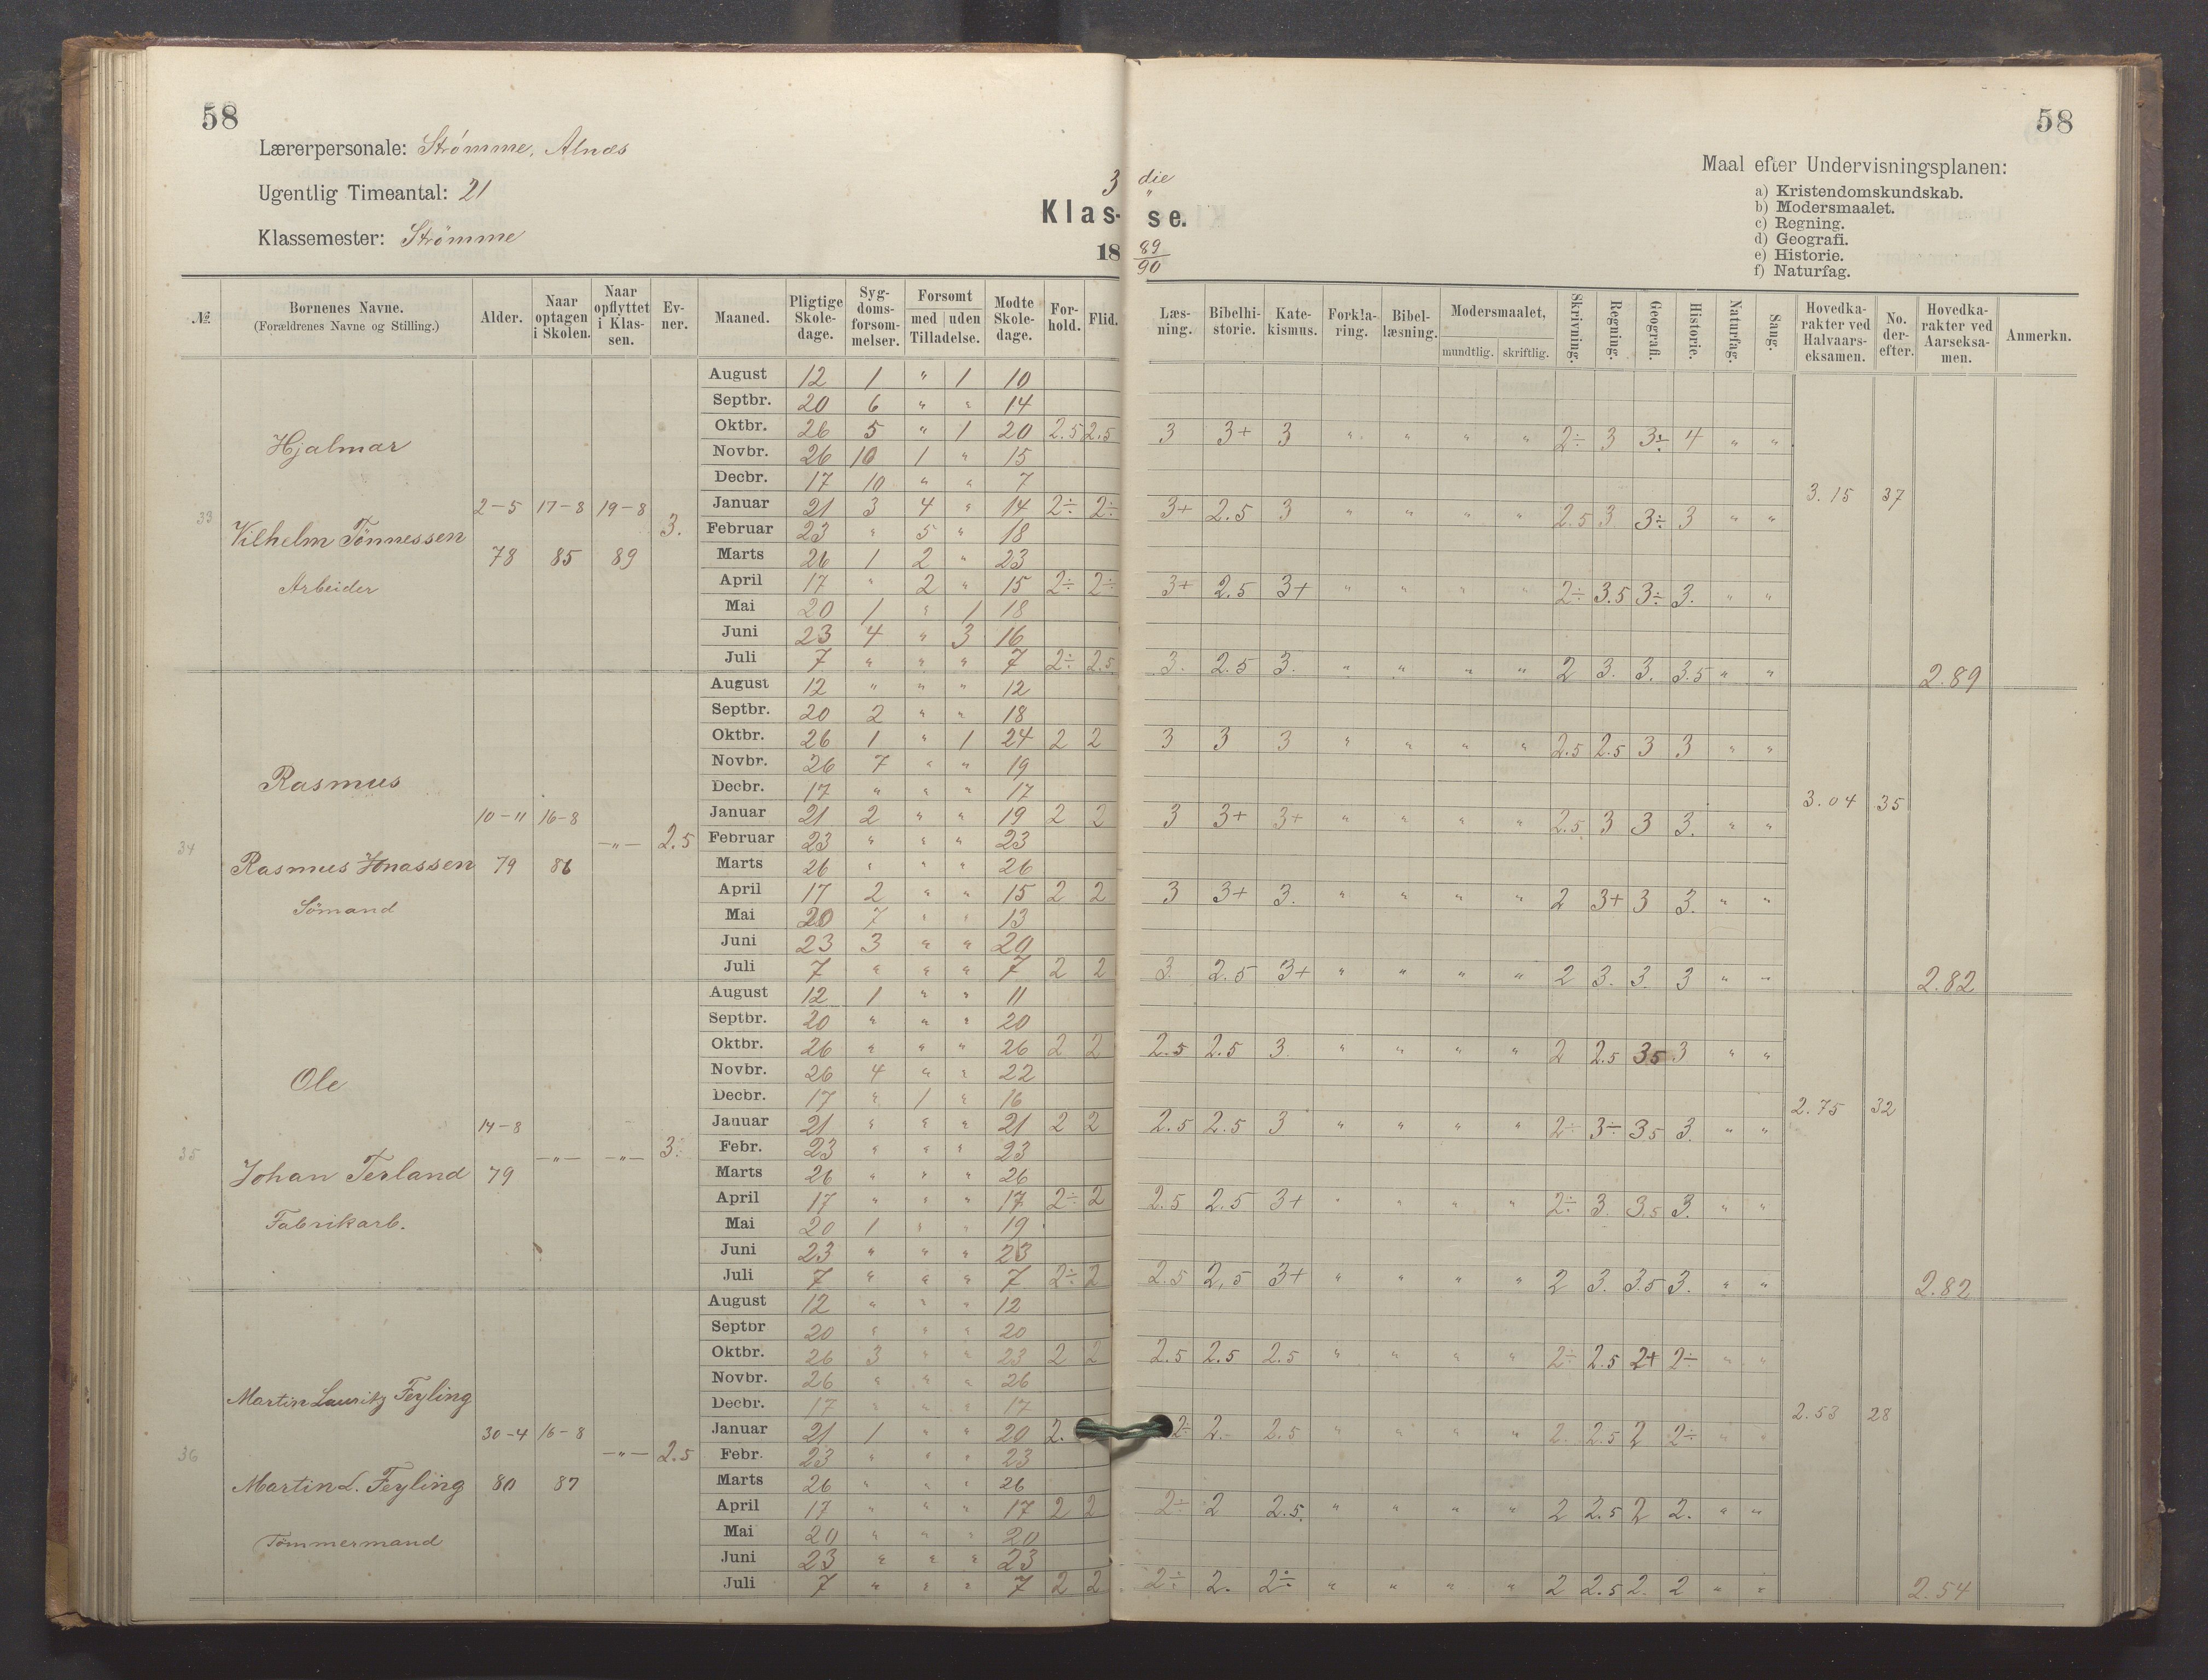 58
Lærerpersonale: Strømme, Alnæs
Ugentlig Timeantal: 21
Klassemester: Strömme
3 die
Klas- se.
18 89/90
58
Maal efter Undervisningsplanen:
a) Kristendomskundskab.
b) Modersmaalet.
c) Regning.
d) Geografi.
e) Historie.
f) Naturfag.
№ Børnenes Navne. (Forældrenes Navne og Stilling.) Alder. Naar optagen i Skolen. Naar opflyttet i Klassen. Evner. Maaned. Pligtige Skoledage. Sygdomsforsømmelser. Forsømt med uden Tilladelse. Mødte Skoledage. Forhold. Flid. Læsning. Bibelhistorie. Katekismus. Forklaring. Bibellæsning. Modersmaalet, mundtlig. skriftlig. Skrivning. Regning. Geografi. Historie. Naturfag. Sang. Hovedkarakter ved Halvaarseksamen. No. derefter. Hovedkarakter ved Aarseksamen. Anmerkn.
33 Hjalmar
Vilhelm Tönnessen
Arbeider
2-5 78 17-8 85 19-8 89 3.
August 12 1 " 1 10
Septbr. 20 6 " " 14
Oktbr. 26 5 " 1 20 2.5 2.5 3 3+ 3 " " " " 2÷ 3 3÷ 4 " "
Novbr. 26 10 1 " 15
Decbr. 17 10 " " 7
Januar 21 3 4 " 14 2÷ 2÷ 3+ 2.5 3 " " " " 2.5 3 3÷ 3 " " 3.15 37
Februar 23 " 5 " 18
Marts 26 1 2 " 23
April 17 " 2 " 15 2÷ 2÷ 3+ 2.5 3+ " " " " 2÷ 3.5 3÷ 3. " "
Mai 20 1 " 1 18
Juni 23 4 " 3 16
Juli 7 " " " 7 2÷ 2.5 3. 2.5 3. " " " " 2 3. 3. 3.5 " " 2.89
34 Rasmus
Rasmus Jonassen
Sömand
10-11 79 16-8 86 -"- 2.5
August 12 " " " 12
Septbr. 20 2 " " 18
Oktbr. 26 1 " 1 24 2 2 3 3 3 " " " " 2.5 2.5 3 3 " "
Novbr. 26 7 " " 19
Decbr. 17 " " " 17
Januar 21 2 " " 19 2 2 3 3+ 3+ " " " " 2.5 3 3 3. " " 3.04 35
Februar 23 " " " 23
Marts 26 " " " 26
April 17 2 " " 15 2 2 3 3+ 3. " " " " 2 3+ 3 3. " "
Mai 20 7 " " 13
Juni 23 3 " " 20
Juli 7 " " " 7 2 2 3 2.5 3+ " " " " 2 3. 3. 3 " " 2.82
35 Ole
Johan Terland
Fabrikarb.
14-8 79 -"- -"- 3÷
August 12 1 " " 11
Septbr. 20 " " " 20
Oktbr. 26 " " " 26 2 2 2.5 2.5 3. " " " " 2 2.5 35 3 " "
Novbr. 26 4 " " 22
Decbr. 17 " 1 " 16
Januar 21 " " " 21 2 2 2.5 2.5 3 " " " " 2÷ 3÷ 3.5 3. " " 2.75 32
Febr. 23 " " " 23
Marts 26 " " " 26
April 17 " " " 17 2÷ 2 2.5 2.5 3+ " " " " 2÷ 3. 3.5 3. " "
Mai 20 1 " " 19
Juni 23 " " " 23
Juli 7 " " " 7 2÷ 2 2.5 2,5 3+ " " " " 2 3. 3.5 3. " " 2.82
36 Martin Lauritz Feyling
Martin L. Feyling
Tömmermand
30-4 80 16-8 87 -"- 2.5
August 12 " " " 12
Septbr 20 " " " 20
Oktbr. 26 3 " " 23 2 2 2.5 2.5 2.5 " " " " 2÷ 2.5 2+ 2÷ " "
Novbr. 26 " " " 26
Decbr. 17 " " " 17
Januar 21 1 " " 20 2. 2÷ 2. 2.5 " " " " 2. 2.5 2 2÷ " " 2.53 28
Febr. 23 " " " 23
Marts 26 " " " 26
April 17 " " " 17 2 2 2÷ 2 2.5. " " " " 2 2.5 2 2. " "
Mai 20 " " " 20
Juni 23 " " " 23
Juli 7 " " " 7 2 2 2÷ 2. 2÷ " " " " 2 2.5 2. 2 " " 2.54